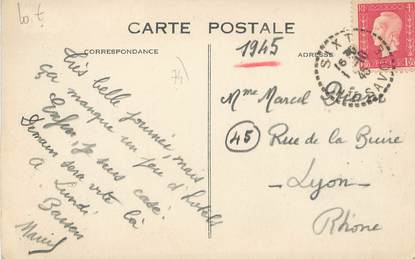 Lo t.
CARTE POSTALE
CORRESPONDANCE
ADRESSE
1945
74)
Très belle journée, mais
ça manque un peu d'hotels
Enfin, je suis casé.
Demain sera vite là
A Lundi
Baisers
Marcel
SIXT
16
45
SAVOIE
Mme Marcel
45 Rue de la Buire
Lyon
Rhône